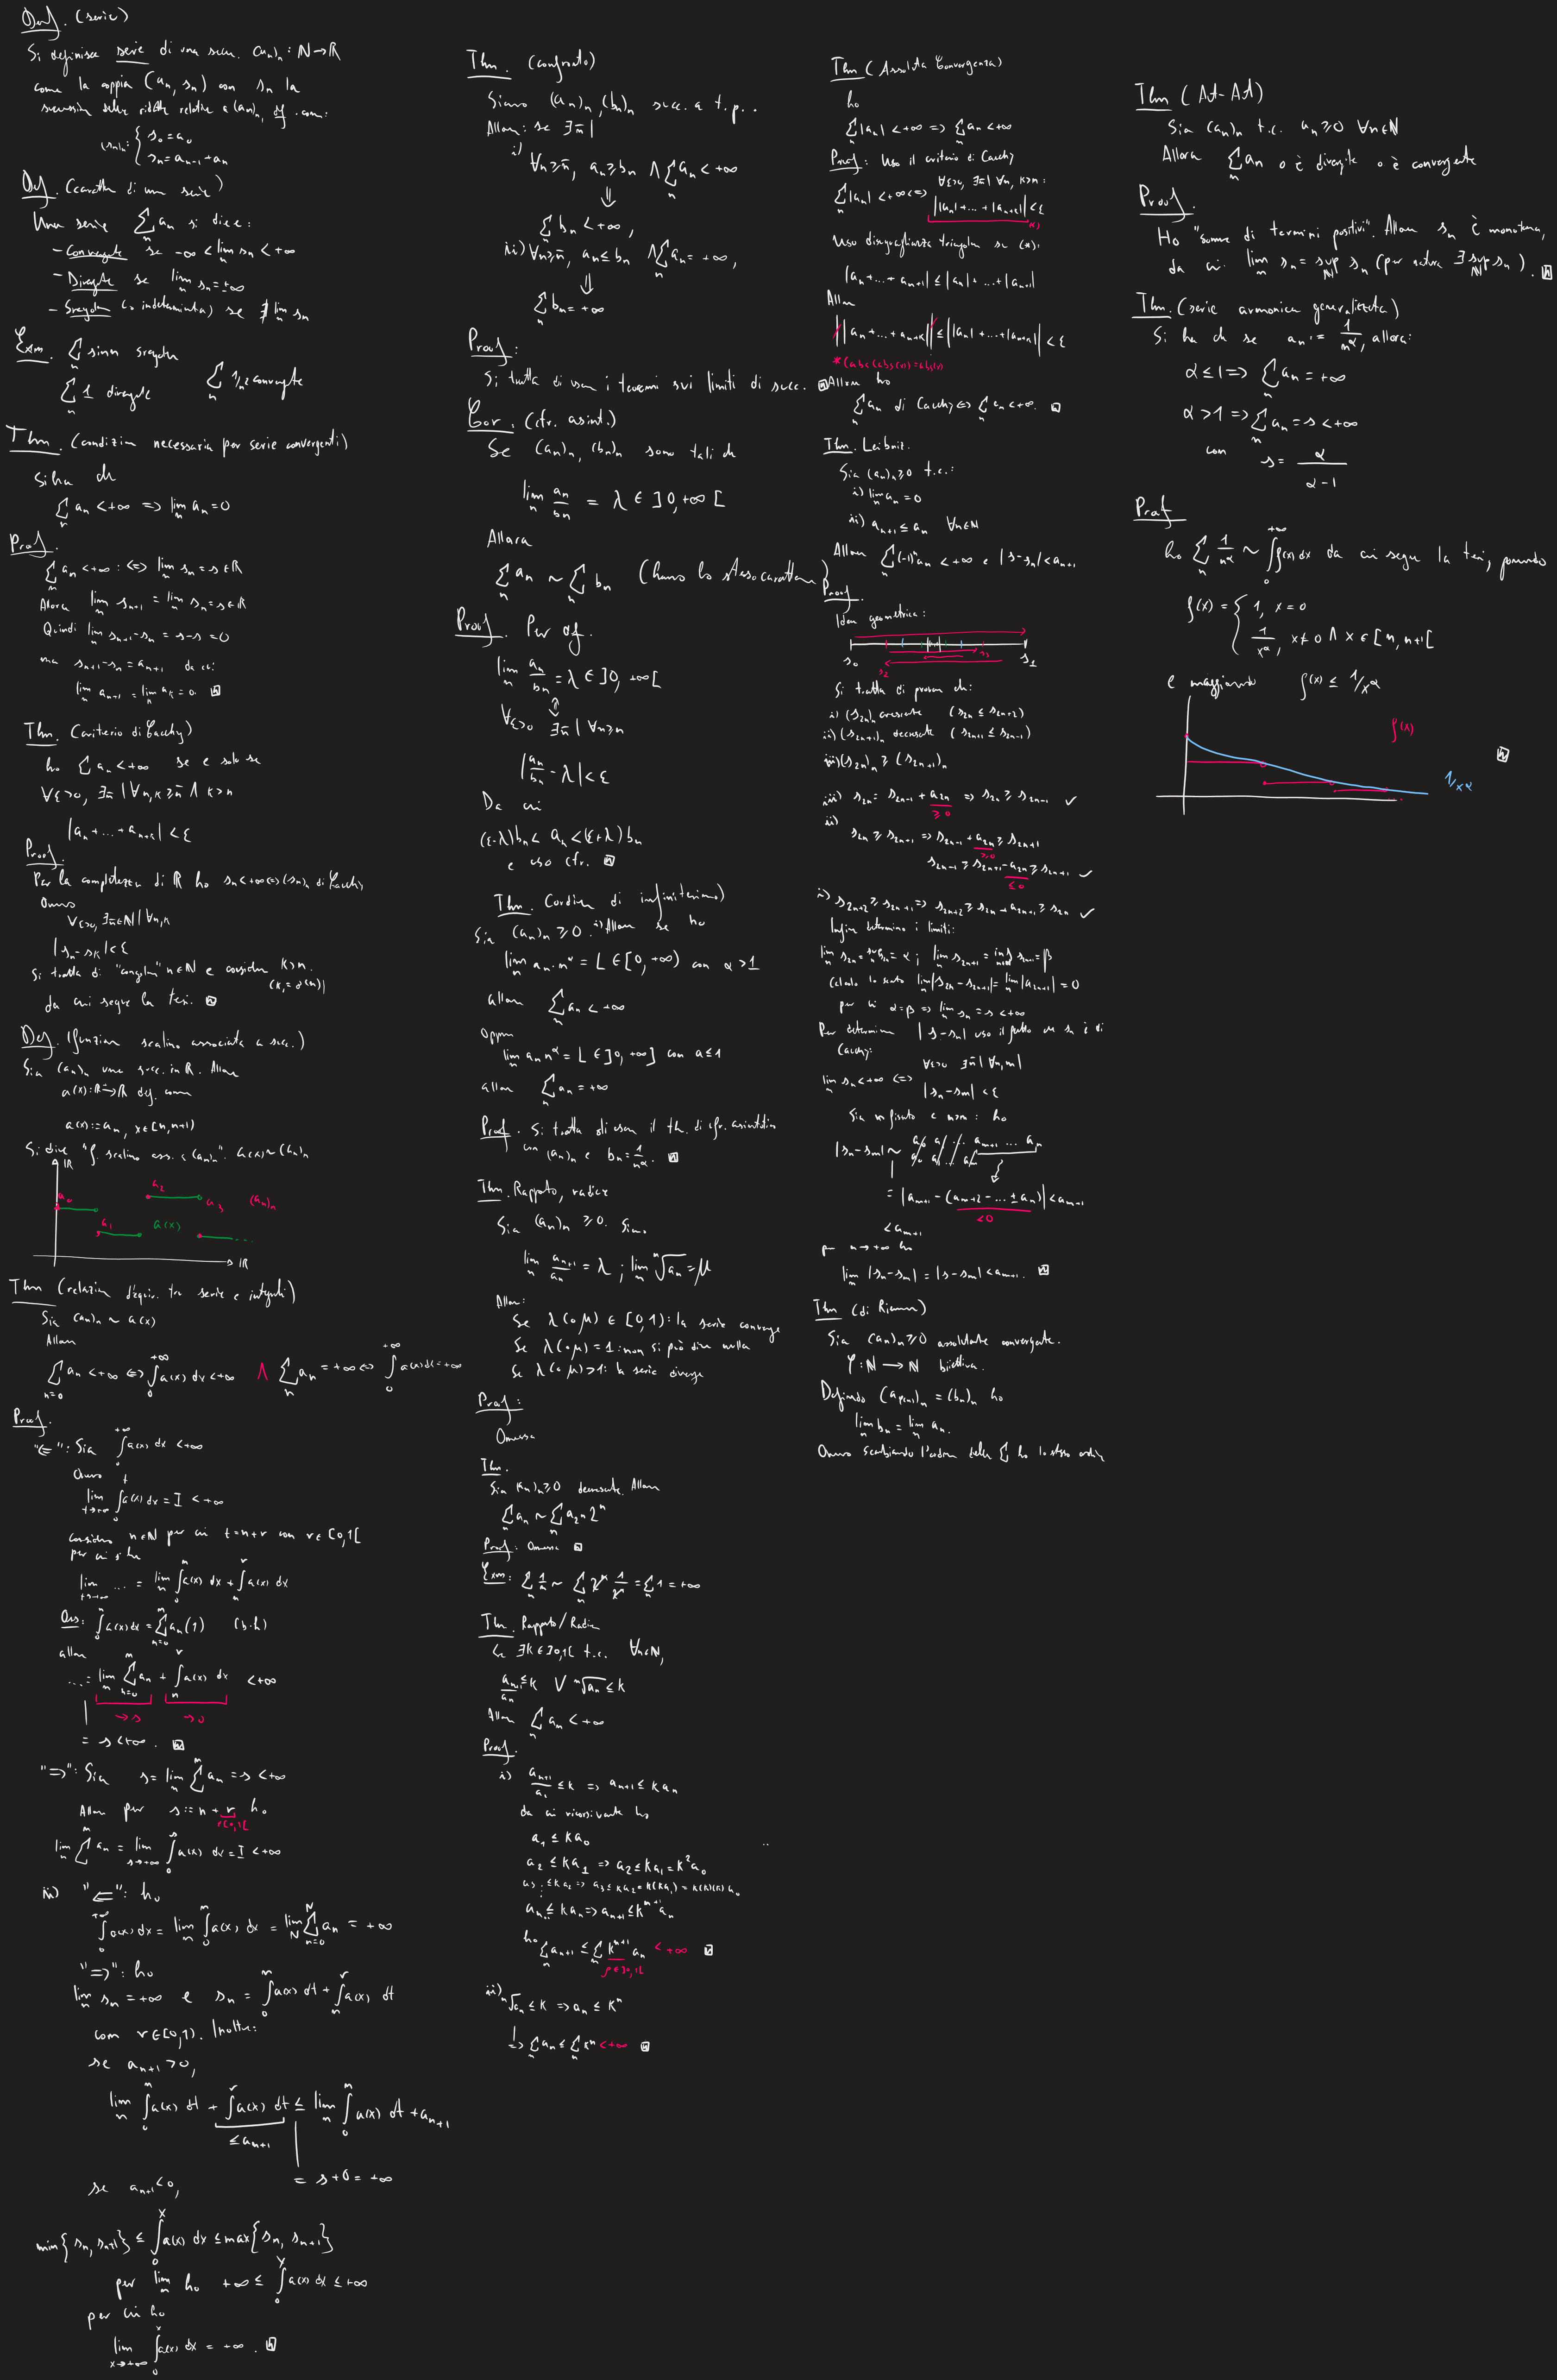 Def. (serie)
Si definisce serie di una succ. (an)n : N→R
come la coppia (an, sn) con sn la
successione delle ridotte relative a (an)n, def. come:
(sn)n: { s0 = a0
sn = an-1 + an
Def. (carattere di una serie)
Una serie ∑n an si dice:
- Convergente se -∞ < limn sn < +∞
- Divergente se limn sn = ±∞
- Irregolare (o indeterminata) se ∄ limn sn
Exm. ∑n sin n irregolare
∑n 1 divergente ∑n 1/2 convergente
Thm. (condizione necessaria per serie convergenti)
Si ha che
∑n an < +∞ => limn an = 0
Proof.
∑n an < +∞ :<=> limn sn = s ∈ R
Allora limn sn+1 = limn sn = s ∈ R
Quindi limn sn+1 - sn = s - s = 0
ma sn+1 - sn = an+1 da cui
limn an+1 = limn an = 0.
Thm. (criterio di Cauchy)
ho ∑ an < +∞ se e solo se
∀ε>0, ∃n̄ | ∀n,k ≥ n̄ ∧ k>n
|an + ... + an+k| < ε
Proof.
Per la completezza di R ho sn < +∞ <=> (sn)n di Cauchy
Ovvero
∀ε>0, ∃n̄∈N | ∀n,k
|sn - sk| < ε
Si tratta di "congelare" n∈N e considerare k>n.
da cui segue la tesi.
Def. (funzione scalino associata a succ.)
Sia (an)n una succ. in R. Allora
a(x): R→R def. come
a(x) := an, x∈[n, n+1)
Si dice "f. scalino ass. a (an)n". a(x) ~ (an)n
R
a0
a1
a2
a3
a(x)
(an)n
R
Thm (relazione d'equiv. tra serie e integrali)
Sia (an)n ~ a(x)
Allora
∑n=0 an < +∞ <=> ∫0+∞ a(x) dx < +∞ ∧ ∑n an = +∞ <=> ∫0+∞ a(x) dx = +∞
Proof.
"<=": Sia ∫0+∞ a(x) dx < +∞
Ovvero
limt→+∞ ∫0t a(x) dx = I < +∞
considero n∈N per cui t = n+r con r∈[0,1[
per cui si ha
limt→+∞ ... = limn ∫0n a(x) dx + ∫nr a(x) dx
Oss: ∫0n a(x) dx = ∑n=0m an(1) (b·h)
allora
... = limn ∑n=0m an + ∫nr a(x) dx < +∞
→ s → 0
= s < +∞.
"=>": Sia s = limn ∑m an = s < +∞
Allora per s := n + r ho
r∈[0,1[
limn ∑m an = lims→+∞ ∫0s a(x) dx = I < +∞
ii) "<=": ho
∫0+∞ a(x) dx = limn ∫0m a(x) dx = limN ∑n=0N an = +∞
"=>": ho
limn sn = +∞ e sn = ∫0m a(x) dt + ∫nr a(x) dt
con r∈[0,1). Inoltre:
se an+1 > 0,
limn ∫0m a(x) dt + ∫r a(x) dt ≤ limn ∫0m a(x) dt + an+1
≤ an+1
= s + 0 = +∞
se an+1 < 0,
min{sn, sn+1} ≤ ∫0x a(x) dx ≤ max{sn, sn+1}
per limn ho +∞ ≤ ∫0x a(x) dx ≤ +∞
per cui ho
limx→+∞ ∫0x a(x) dx = +∞.
Thm. (confronto)
Siano (an)n, (bn)n succ. a t.p..
Allora: se ∃n̄ |
i) ∀n≥n̄, an ≥ bn ∧ ∑n an < +∞
⇓
∑n bn < +∞,
ii) ∀n≥n̄, an ≤ bn ∧ ∑n an = +∞,
⇓
∑n bn = +∞
Proof:
Si tratta di usare i teoremi sui limiti di succ.
Cor. (cfr. asint.)
Se (an)n, (bn)n sono tali che
limn an/bn = λ ∈ ]0, +∞[
Allora
∑n an ~ ∑n bn (hanno lo stesso carattere)
Proof. Per def.
limn an/bn = λ ∈ ]0, +∞[
⇕
∀ε>0 ∃n̄ | ∀n≥n
|an/bn - λ| < ε
Da cui
(ε-λ)bn < an < (ε+λ)bn
e uso cfr.
Thm. (ordine di infinitesimo)
Sia (an)n ≥ 0. i) Allora se ho
limn an·nα = L ∈ [0, +∞) con α>1
allora ∑n an < +∞
Oppure
limn an nα = L ∈ ]0, +∞] con α≤1
allora ∑n an = +∞
Proof. Si tratta di usare il th. di cfr. asintotico
con (an)n e bn = 1/nα.
Thm. Rapporto, radice
Sia (an)n ≥ 0. Siano
limn an+1/an = λ ; limn n√an = μ
Allora:
Se λ (o μ) ∈ [0,1): la serie converge
Se λ (o μ) = 1: non si può dire nulla
Se λ (o μ) > 1: la serie diverge
Proof:
Omessa
Thm.
Sia (an)n ≥ 0 decrescente. Allora
∑n an ~ ∑n a2n 2n
Proof: Omessa
Exm: ∑n 1/n ~ ∑n 2n 1/2n = ∑n 1 = +∞
Thm. Rapporto/Radice
Se ∃k∈]0,1[ t.c. ∀n∈N,
an+1/an ≤ k ∨ n√an ≤ k
Allora ∑n an < +∞
Proof.
i) an+1/an ≤ k => an+1 ≤ k an
da cui ricorsivamente ho
a1 ≤ k a0
a2 ≤ k a1 => a2 ≤ k a1 = k2 a0
a3 ≤ k a2 => a3 ≤ k a2 = k(k a1) = k(k)(k) a0
an+1 ≤ k an => an+1 ≤ kn+1 an
ho ∑n an+1 ≤ ∑n kn+1 an < +∞
ρ∈]0,1[
ii) n√an ≤ k => an ≤ kn
=> ∑n an ≤ ∑n kn < +∞
Thm (Assoluta Convergenza)
ho
∑n |an| < +∞ => ∑n an < +∞
Proof: Uso il criterio di Cauchy
∑n |an| < +∞ <=> ∀ε>0, ∃n̄ | ∀n, k>n:
||an| + ... + |an+k|| < ε
(*)
Uso disuguaglianza triangolare su (*):
|an + ... + an+1| ≤ |an| + ... + |an+1|
Allora
||an + ... + an+k|| ≤ ||an| + ... + |an+k|| < ε
*(abs(abs(x)) = abs(x))
Allora ho
∑n an di Cauchy <=> ∑n an < +∞.
Thm. Leibniz.
Sia (an)n ≥ 0 t.c.:
i) limn an = 0
ii) an+1 ≤ an ∀n∈N
Allora ∑n (-1)n an < +∞ e |s - sn| < an+1
Proof.
Idea geometrica:
s0 s2 s3 s1
Si tratta di provare che:
i) (s2n)n crescente (s2n ≤ s2n+2)
ii) (s2n+1)n decrescente (s2n+1 ≤ s2n-1)
iii) (s2n)n ≥ (s2n+1)n
iii) s2n = s2n-1 + a2n => s2n ≥ s2n-1 ✓
≥0
ii) s2n ≥ s2n+1 => s2n-1 + a2n ≥ s2n+1
≥0
s2n-1 ≥ s2n+1 - a2n ≥ s2n+1 ✓
≤0
i) s2n+2 ≥ s2n+1 => s2n+2 ≥ s2n + a2n+1 ≥ s2n ✓
Infine determino i limiti:
limn s2n = supn s2n = α ; limn s2n+1 = inf s2n+1 = β
Calcolo lo scarto limn |s2n - s2n+1| = limn |a2n+1| = 0
per cui α = β => limn sn = s < +∞
Per determinare |s - sn| uso il fatto che sn è di
Cauchy:
limn sn < +∞ <=> ∀ε>0 ∃n̄ | ∀n,m |
|sn - sm| < ε
Sia m fissato e n>m: ho
|sn - sm| ~ a0 a1 ... am+1 ... an
a0 a1 ... am
= |am+1 - (am+2 - ... ± an)| < am+1
<0
< am+1
per n→+∞ ho
limn |sn - sm| = |s - sm| < am+1.
Thm (di Riemann)
Sia (an)n ≥ 0 assolutamente convergente.
φ: N → N biiettiva.
Definendo (aφ(n))n = (bn)n ho
limn bn = limn an.
Ovvero scambiando l'ordine della ∑ ho lo stesso
Thm (Aut-Aut)
Sia (an)n t.c. an ≥ 0 ∀n∈N
Allora ∑n an o è divergente o è convergente
Proof.
Ho "somme di termini positivi". Allora sn è monotona,
da cui limn sn = supN sn (per natura ∃ supN sn).
Thm. (serie armonica generalizzata)
Si ha che se an := 1/nα, allora:
α ≤ 1 => ∑n an = +∞
α > 1 => ∑n an = s < +∞
con s = α/(α-1)
Proof
ho ∑n 1/nα ~ ∫0+∞ f(x) dx da cui segue la tesi, ponendo
f(x) = { 1, x = 0
1/xα, x≠0 ∧ x∈[n, n+1[
e maggiorando f(x) ≤ 1/xα
f(x)
1/xα